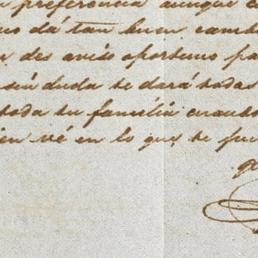 preferencia aunque c
no dá tan buen camb
, des aviso oportuno pa
sin duda te dará todas
toda tu familia cuando
ien vé en lo que te pue